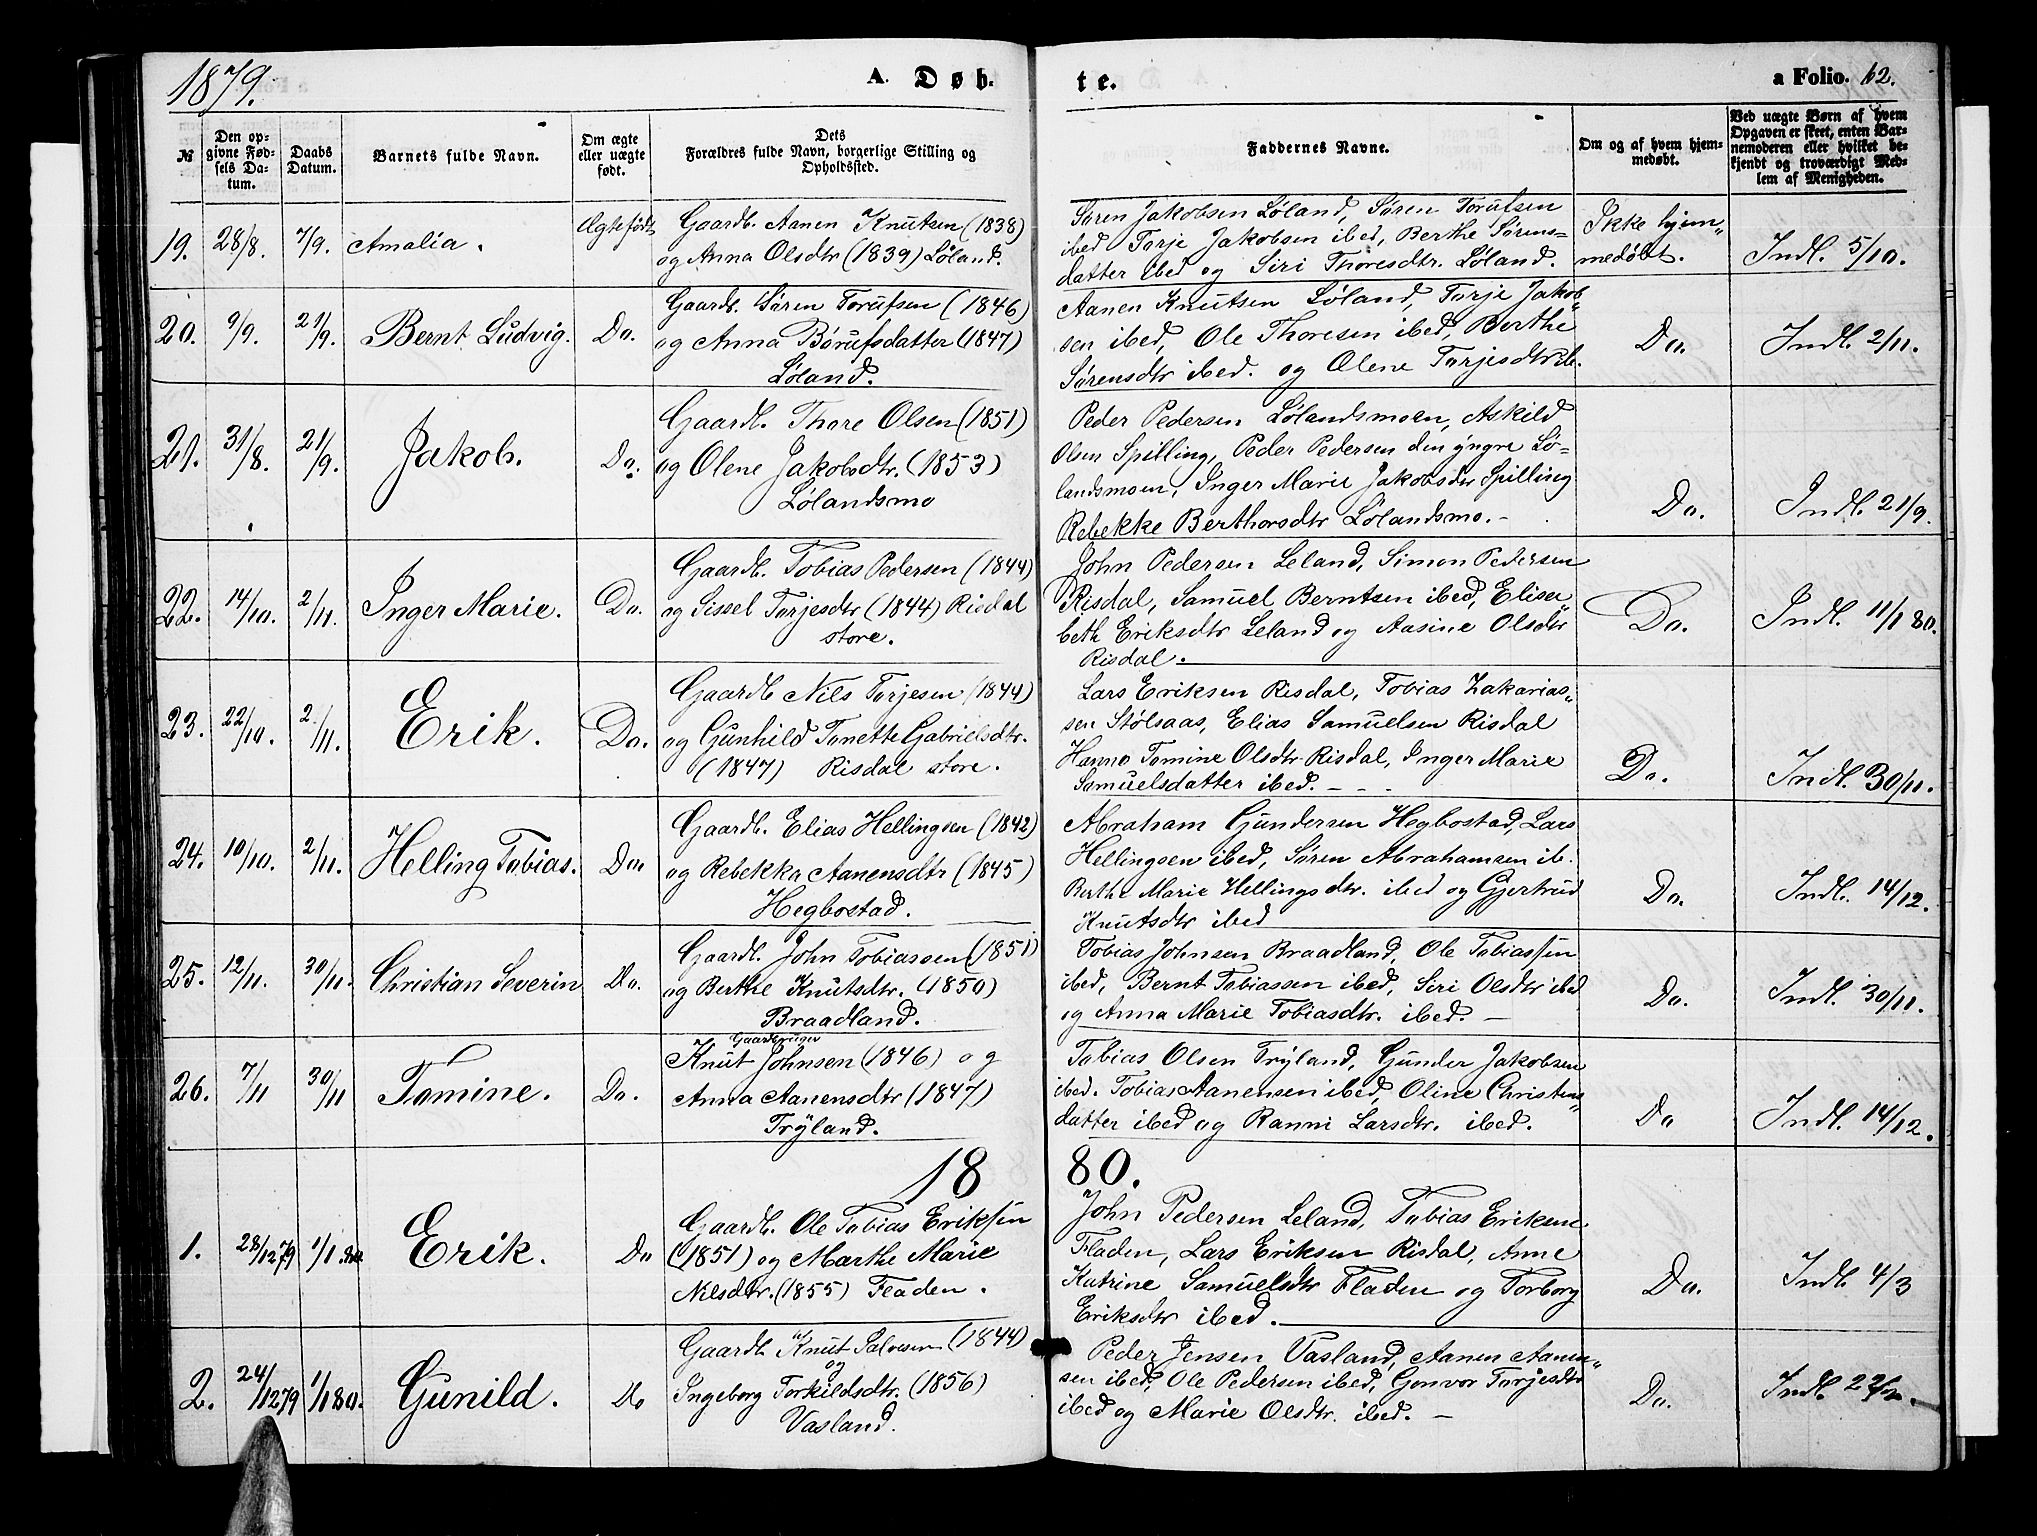 1879.
A. Døb-
te.
a Folio. 62.
№
Den op-
givne Fød-
sels Da-
tum.
Daabs
Datum.
Barnets fulde Navn.
Om ægte
eller uægte
født.
Dets
Forældres fulde Navn, borgerlige Stilling og
Opholdssted.
Faddernes Navne.
Om og af hvem hjem-
medøbt.
Ved uægte Børn af hvem
Opgaven er skeet, enten Bar-
nemoderen eller hvilket be-
kjendt og troværdigt Med-
lem af Menigheden.
19. 28/8. 7/9. Amalia. Ægtefødt
Gaardb. Aanen Knutsen (1838)
og Anna Olsdtr (1839) Løland.
Søren Jakobsen Løland, Søren Torufsen
ibed Torje Jakobsen ibed, Berthe Sørens-
datter ibed og Siri Thoresdtr. Løland.
Ikke hjem-
medøbt.
Indl. 5/10.
20. 9/9. 21/9. Bernt Ludvig. Do.
Gaardb. Søren Torufsen (1846)
og Anna Børufsdatter (1847)
Løland.
Aanen Knutsen Løland, Torje Jakob-
sen ibed, Ole Thoresen ibed, Berthe
Sørensdtr ibed. og Olene Torjesdtr ib.
Do.
Indl. 2/11.
21. 31/8. 21/9. Jakob. Do.
Gaardb. Thore Olsen (1851)
og Olene Jakobsdtr. (1853)
Lølandsmo
Peder Pedersen Lølandsmoen, Askild
Olsen Spilling, Peder Pedersen den yngre Lø-
landsmoen, Inger Marie Jakobsdtr Spilling
Rebekke Berthorsdtr Lølandsmo.-
Do.
Indl. 21/9.
22. 14/10. 2/11. Inger Marie. Do.
Gaardb. Tobias Pedersen (1844)
og Sissel Torjesdtr (1844) Risdal
store.
John Pedersen Leland, Simon Pedersen
Risdal, Samuel Berntsen ibed, Elisa-
beth Eriksdtr Leland og Aasine Olsdtr
Risdal.
Do.
Indl. 11/1 80.
23. 22/10. 2/11. Erik. Do.
Gaardb Nils Torjesen (1844)
og Gunhild Tonette Gabrielsdtr.
(1847) Risdal store.
Lars Eriksen Risdal, Tobias Zakarias-
sen Stølsaas, Elias Samuelsen Risdal
Hanna Tomine Olsdtr Risdal, Inger Marie
Samuelsdatter ibed.
Do.
Indl. 30/11.
24. 10/10. 2/11. Helling Tobias. Do.
Gaardb. Elias Hellingsen (1842)
og Rebekka Aanensdtr (1845)
Hegbostad.
Abraham Gundersen Hegbostad, Lars
Hellingsen ibed, Søren Abrahamsen ib.
Berthe Marie Hellingsdtr. ibed og Gjertrud
Knutsdtr ibed
Do.
Indl. 14/12.
25. 12/11. 30/11. Christian Severin Do.
Gaardb. John Tobiassen (1851)
og Berthe Knutsdtr. (1850)
Braadland.
Tobias Johnsen Braadland, Ole Tobiassen
ibed, Bernt Tobiassen ibed, Siri Olsdtr ibed
og Anna Marie Tobiasdtr. ibed.-
Do.
Indl. 30/11.
26. 7/11 30/11 Tomine. Do.
Gaardbruger
Knut Johnsen (1846) og
Anna Aanensdtr (1847)
Tryland.
Tobias Olsen Tryland, Gunder Jakobsen
ibed. Tobias Aanensen ibed, Oline Christens-
datter ibed og Ranni Larsdtr. ibed.
Do
Indl. 14/12.
1880.
1. 28/12 79 1/1 80. Erik. Do
Gaardb. Ole Tobias Eriksen
(1851) og Marthe Marie
Nilsdtr. (1855) Fladen.
John Pedersen Leland, Tobias Eriksen
Fladen, Lars Eriksen Risdal, Anne
Katrine Samuelsdtr Fladen og Torborg
Eriksdtr ibed.
Do.
Indl 4/3
2. 24/12 79 1/1 80. Gunild. Do
Gaardb Knut Salvesen (1844)
og
Ingeborg Torkildsdtr. (1856)
Vasland.
Peder Jensen Vasland, Aanen Aanen-
sen ibed, Ole Pedersen ibed, Gonvor Torjesdtr
ibed og Marie Olsdtr. ibed.-
Do.
Indl